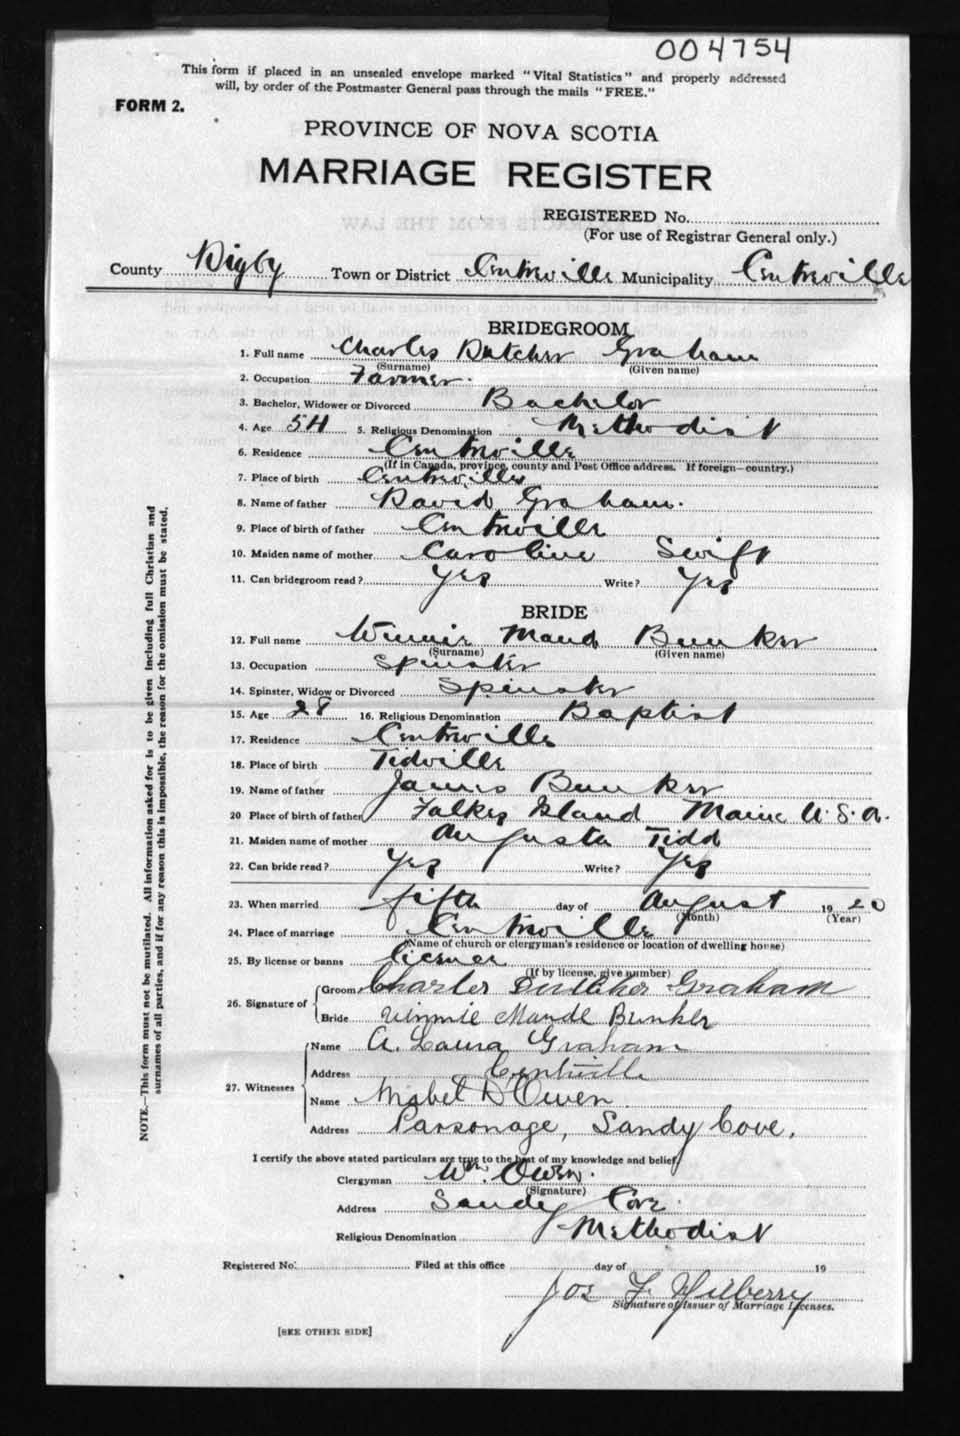 004754
This form if placed in an unsealed envelope marked "Vital Statistics" and properly addressed
will, by order of the Postmaster General pass through the mails "FREE."
FORM 2.
PROVINCE OF NOVA SCOTIA
MARRIAGE REGISTER
REGISTERED No.
(For use of Registrar General only.)
County Digby Town or District Centreville Municipality Centreville
BRIDEGROOM
1. Full name Charles Dutcher Graham
(Surname) (Given name)
2. Occupation Farmer.
3. Bachelor, Widower or Divorced Bachelor
4. Age 54 5. Religious Denomination Methodist
6. Residence Centreville
(If in Canada, province, county and Post Office address. If foreign—country.)
7. Place of birth Centreville
8. Name of father David Graham.
9. Place of birth of father Centreville
10. Maiden name of mother Caroline Swift
11. Can bridegroom read? Yes Write? Yes
BRIDE
12. Full name Winnie Maud Bunker
(Surname) (Given name)
13. Occupation Spinster
14. Spinster, Widow or Divorced Spinster
15. Age 28 16. Religious Denomination Baptist
17. Residence Centreville
18. Place of birth Tidville
19. Name of father James Bunker
20 Place of birth of father Island Maine U.S.A.
21. Maiden name of mother Augusta Tidd
22. Can bride read? Yes Write? Yes
23. When married fifth day of August 1920
(Month) (Year)
24. Place of marriage Centreville
(Name of church or clergyman's residence or location of dwelling house)
25. By license or banns
(If by license, give number)
26. Signature of
Groom Charles Dutcher Graham
Bride Winnie Maude Bunker
27. Witnesses
Name A. Laura Graham
Address Centreville
Name Mabel D Owen
Address Parsonage, Sandy Cove.
I certify the above stated particulars are true to the best of my knowledge and belief
Clergyman Wm. Owen.
(Signature)
Address Sandy Cove.
Religious Denomination Methodist
Registered No. Filed at this office day of 19
Jos F
Signature of Issuer of Marriage Licenses.
[SEE OTHER SIDE]
NOTE.—This form must not be mutilated. All information asked for is to be given including full Christian and
surnames of all parties, and if for any reason this is impossible, the reason for the omission must be stated.